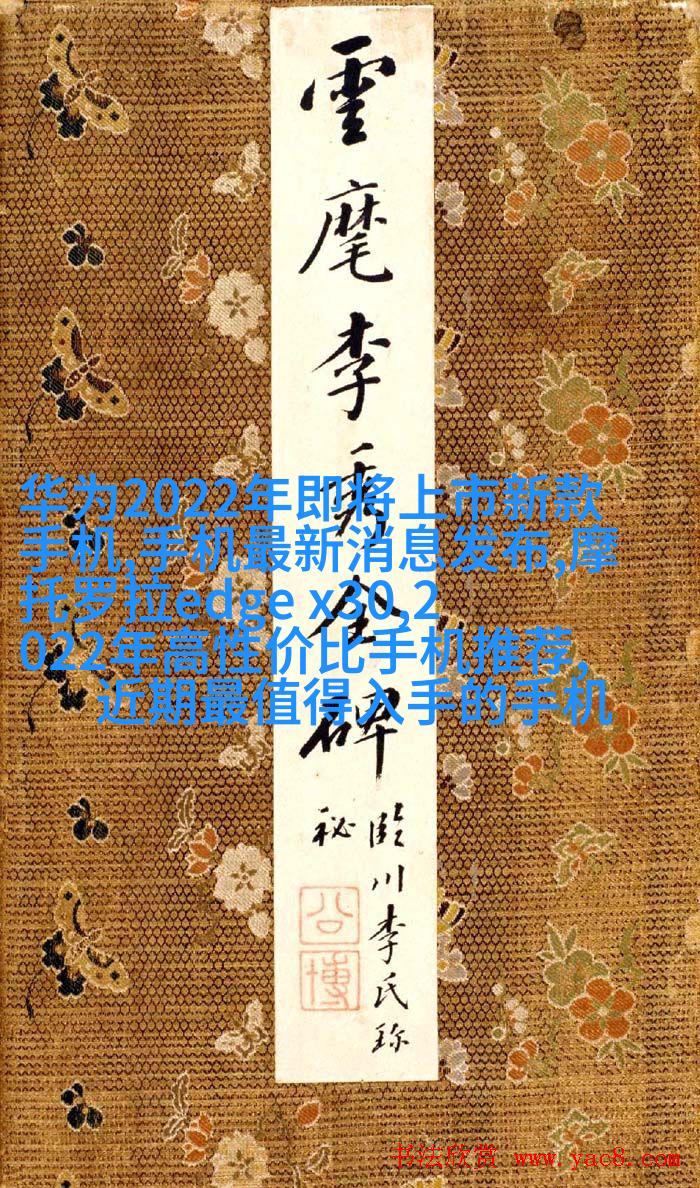 雲麾李秀全碑
臨川李氏珎
秘
公
博
华为2022年即将上市新款
手机,手机最新消息发布,摩
托罗拉edge x30,2
022年高性价比手机推荐,
近期最值得入手的手机
书法欣赏 www.yac8.com